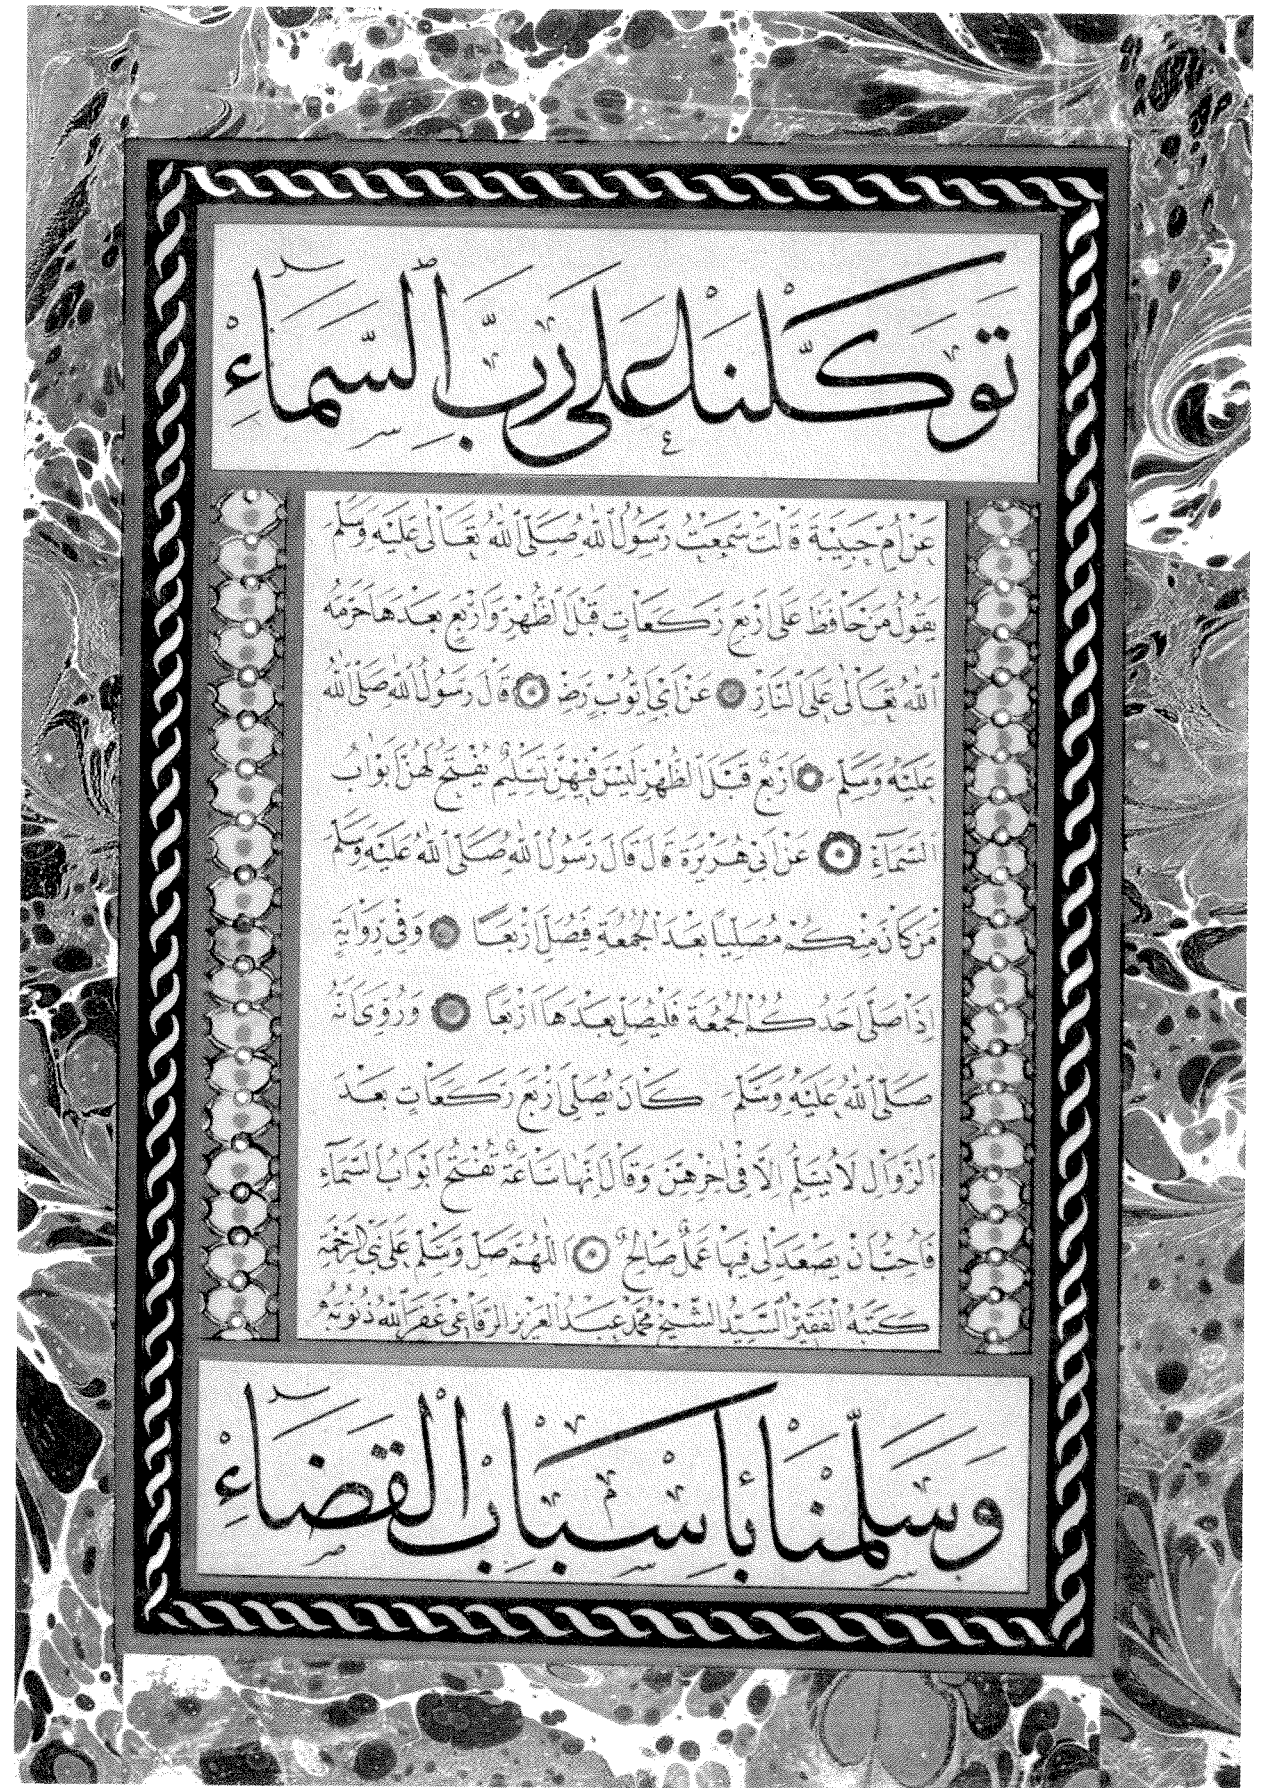 توكلنا على رب السماء
عن ام حبيبة قالت سمعت رسول الله صلى الله تعالى عليه وسلم
يقول من حافظ على اربع ركعات قبل الظهر واربع بعدها حرمه
الله تعالى على النار عن ابي ايوب رض قال رسول الله صلى الله
عليه وسلم اربع قبل الظهر ليس فيهن تسليم تفتح لهن ابواب
السماء عن ابي هريرة قال قال رسول الله صلى الله عليه وسلم
من كان منكم مصليا بعد الجمعة فصل اربعا وفي رواية
اذا صلى احدكم الجمعة فليصل بعدها اربعا وروى انه
صلى الله عليه وسلم كان يصلي اربع ركعات بعد
الزوال لا يسلم الا في اخرهن وقال انها ساعة تفتح ابواب السماء
فاحب ان يصعد لي فيها عمل صالح اللهم صل وسلم على نبي الرحمة
كتبه الفقير السيد الشيخ محمد عبد العزيز الرفاعي غفر الله ذنوبه
وسلمنا بأسباب القضاء